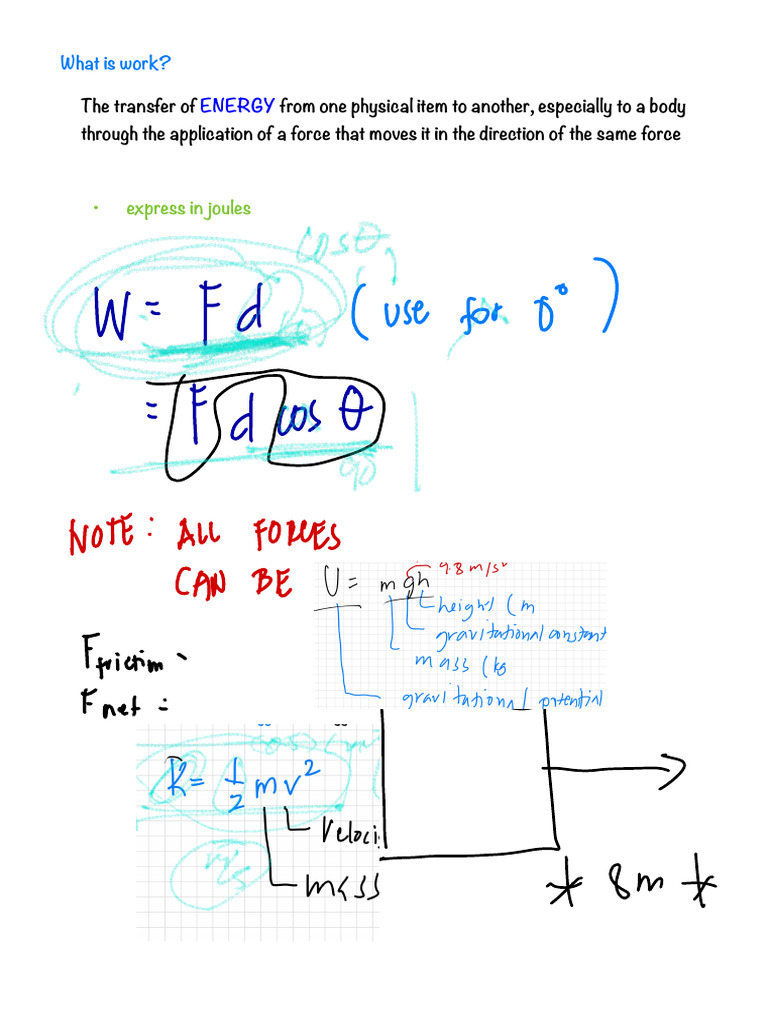 What is work?
The transfer of ENERGY from one physical item to another, especially to a body
through the application of a force that moves it in the direction of the same force
• express in joules
cosθ
W = Fd (use for 0°)
= Fd cos θ
90
NOTE: ALL FORCES
CAN BE
U = mgh 9.8 m/s²
height (m
gravitational constant
mass (kg
gravitational potential
Ffriction
Fnet =
K = 1/2 mv²
veloci
mass
8m